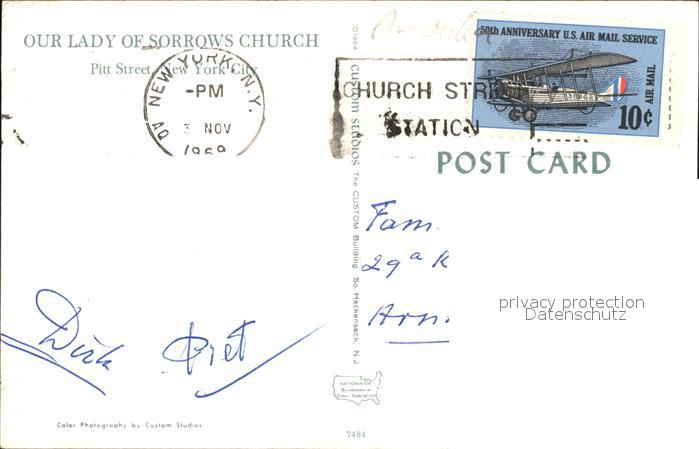 OUR LADY OF SORROWS CHURCH
Pitt Street, New York City
NEW YORK, N.Y.
-PM
3 NOV
1969
CHURCH STREET
STATION
50th ANNIVERSARY U.S. AIR MAIL SERVICE
AIR MAIL
10¢
POST CARD
©1964 custom studios The CUSTOM Building So. Hackensack, N.J.
Fam.
29ª K
Arn
privacy protection
Datenschutz
Dirk Piet
NATIONWIDE
Ecclesiastical
Color Specialists
Color Photography by Custom Studios
7484